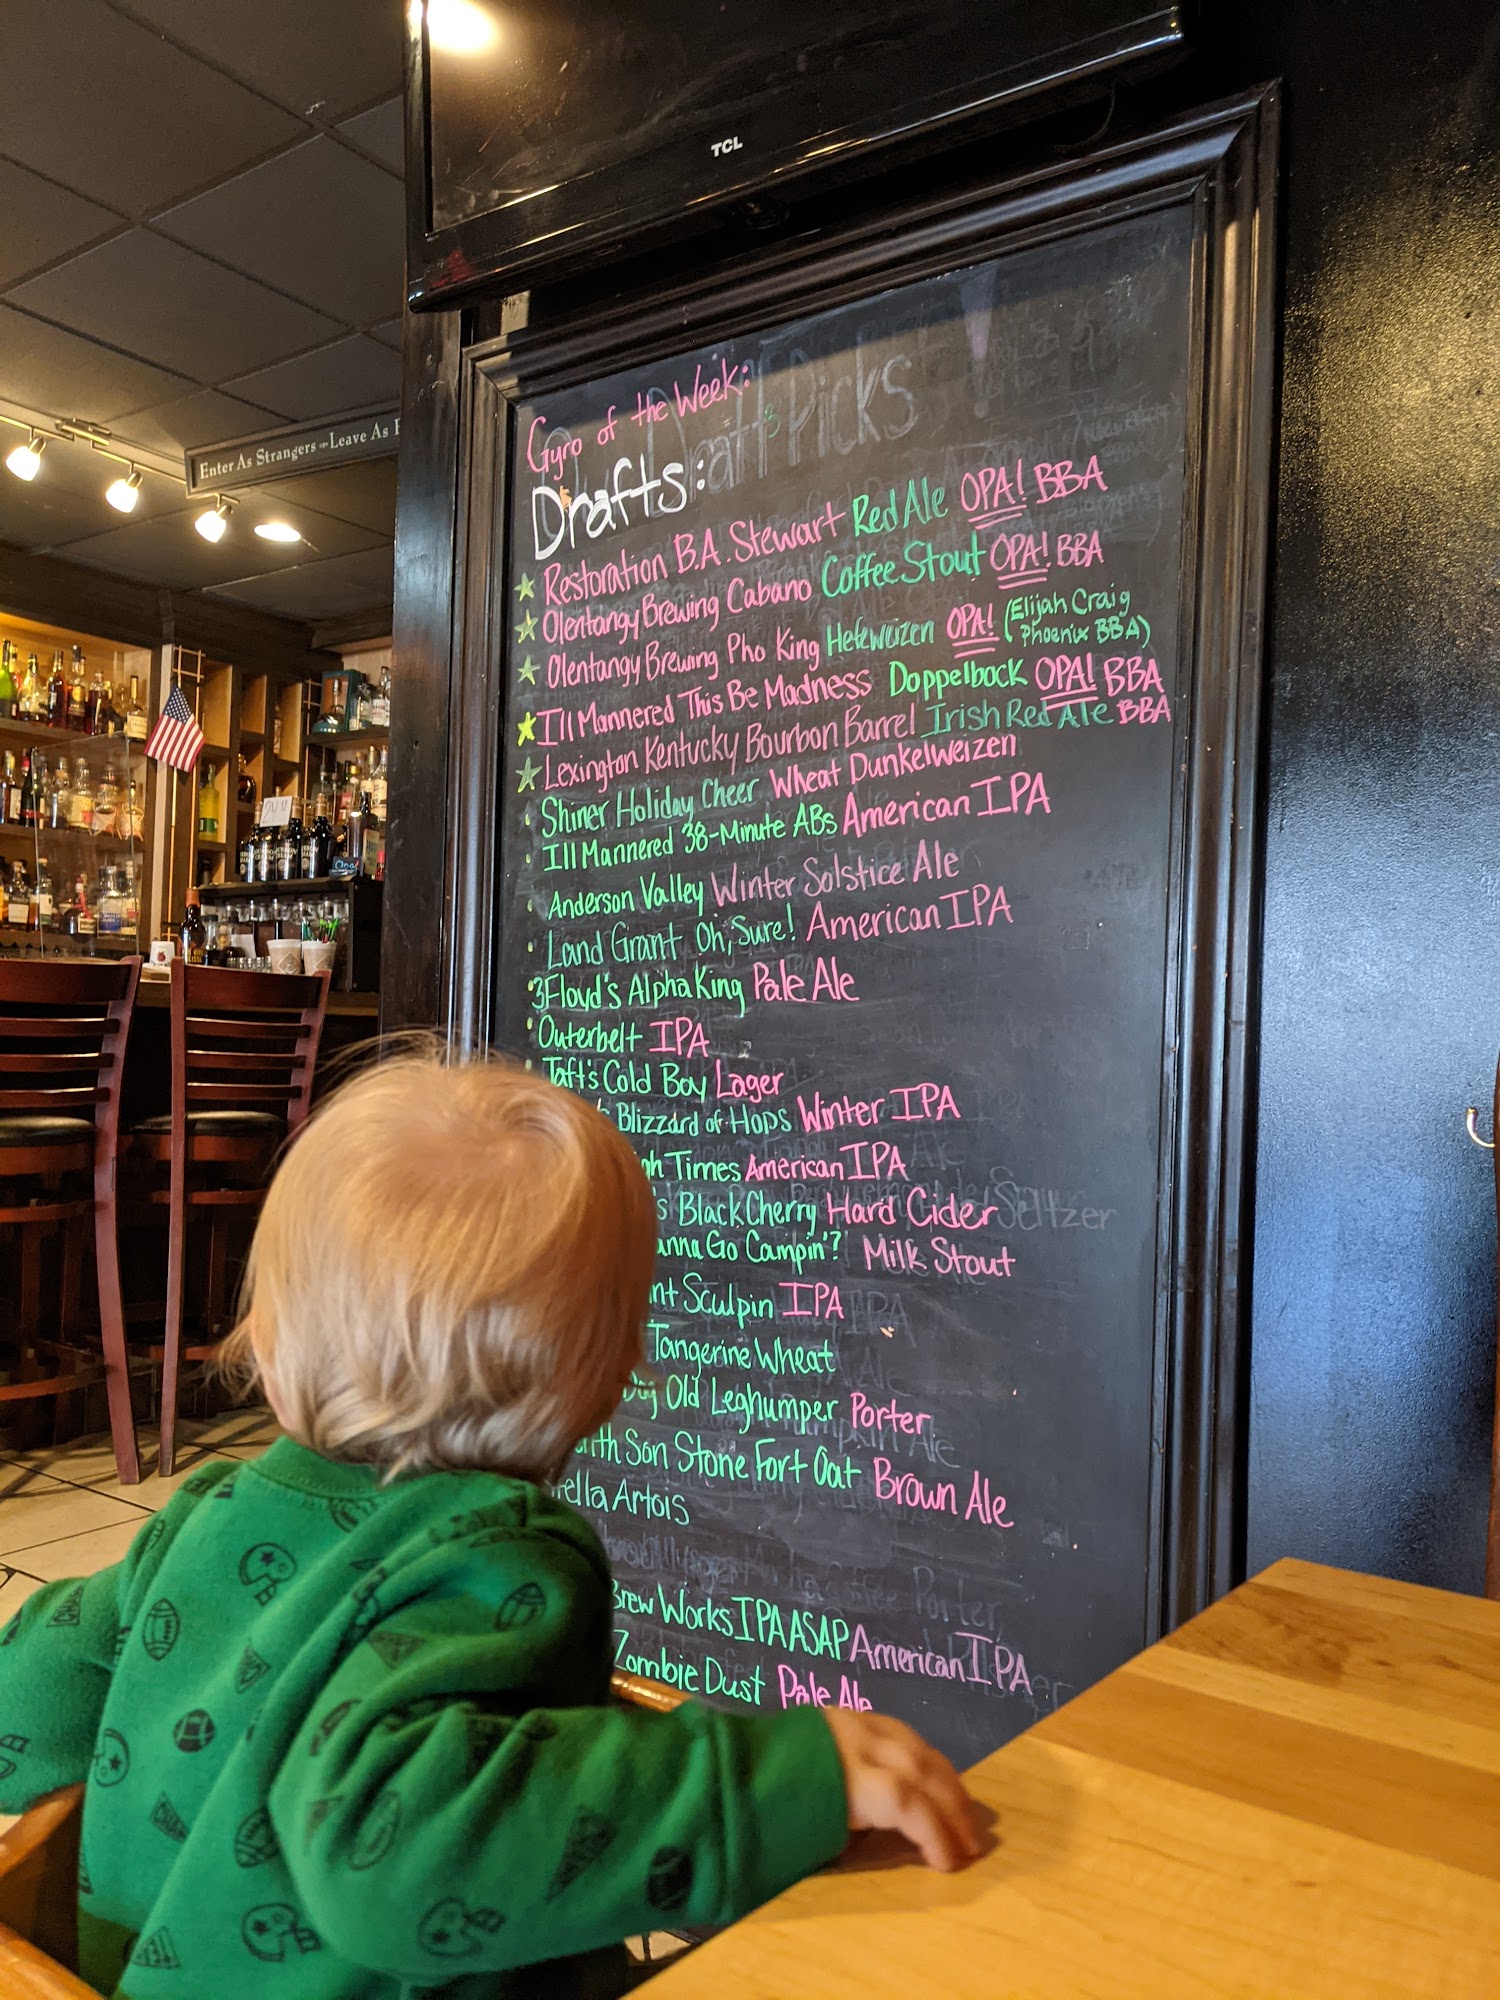 TCL
Enter As Strangers Leave As
Gyro of the Week:
Draft Picks
Drafts:
Restoration B.A. Stewart Red Ale OPA! BBA
Olentangy Brewing Cabano Coffee Stout OPA! BBA
Olentangy Brewing Pho King Hefeweizen OPA! (Elijah Craig
Phoenix BBA)
Ill Mannered This Be Madness Doppelbock OPA! BBA
Lexington Kentucky Bourbon Barrel Irish Red Ale BBA
Shiner Holiday Cheer Wheat Dunkelweizen
Ill Mannered 38-Minute ABs American IPA
Anderson Valley Winter Solstice Ale
Land Grant Oh, Sure! American IPA
3Floyd's Alpha King Pale Ale
Outerbelt IPA
Taft's Cold Boy Lager
Blizzard of Hops Winter IPA
Times American IPA
Black Cherry Hard Cider Seltzer
Go Campin'? Milk Stout
Sculpin IPA
Tangerine Wheat
Dog Old Leghumper Porter
Son Stone Fort Oat Brown Ale
Artois
Brew Works IPA ASAP American IPA
Zombie Dust Pale Ale